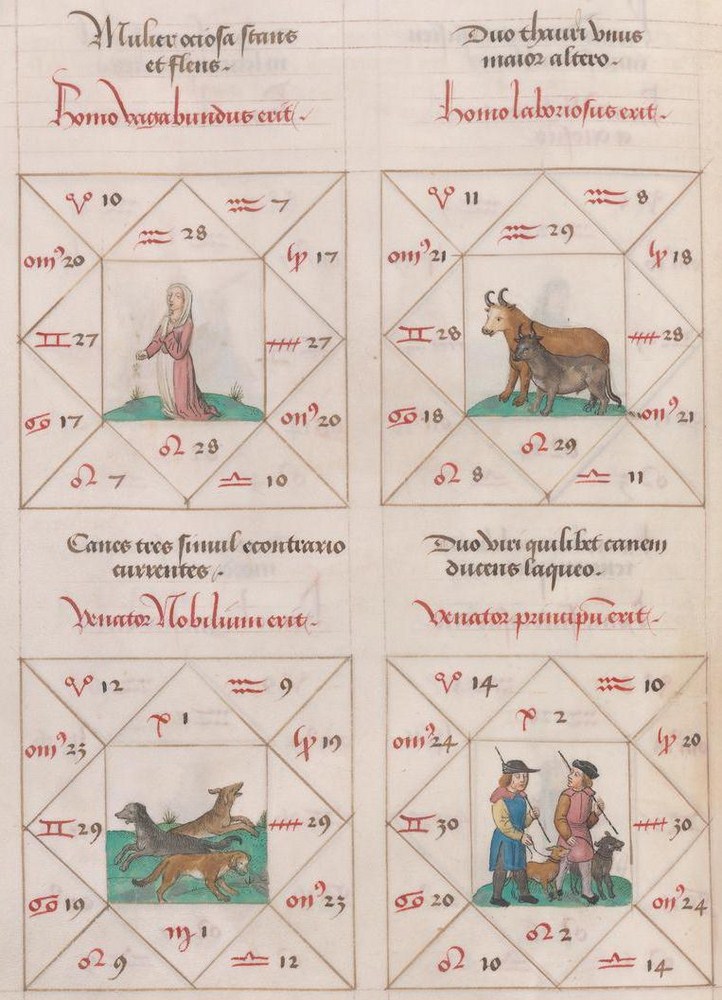 Mulier ociosa stans
et flens.
Homo vagabundus erit.
♈ 10
♒ 7
♒ 28
omꝰ 20
lp 17
♊ 27
27
♋ 17
onꝰ 20
♌ 28
♌ 7
♎ 10
Duo thauri vnus
maior altero.
homo laboriosus erit.
♈ 11
♒ 8
♒ 29
omꝰ 21
lp 18
♊ 28
28
♋ 18
onꝰ 21
♌ 29
♌ 8
♎ 11
Canes tres simul econtrario
currentes.
Venator Nobilium erit.
♈ 12
♒ 9
p 1
omꝰ 23
lp 19
♊ 29
29
♋ 19
onꝰ 23
♍ 1
♌ 9
♎ 12
Duo viri quilibet canem
ducens laqueo.
Venator principū erit.
♈ 14
♒ 10
p 2
omꝰ 24
lp 20
♊ 30
30
♋ 20
onꝰ 24
♌ 2
♌ 10
♎ 14